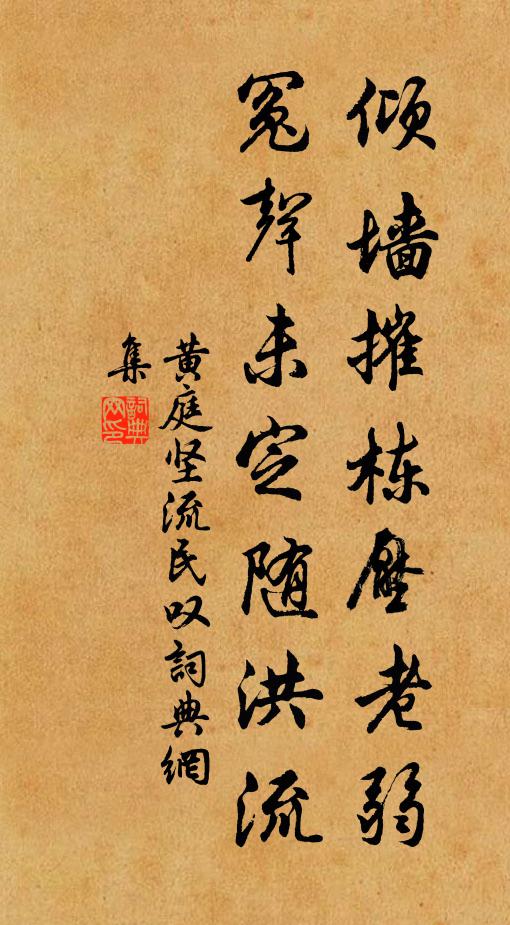 倾墙摧栋压老弱
冤声未定随洪流
黄庭坚流民叹詞典網
集
詞典网印